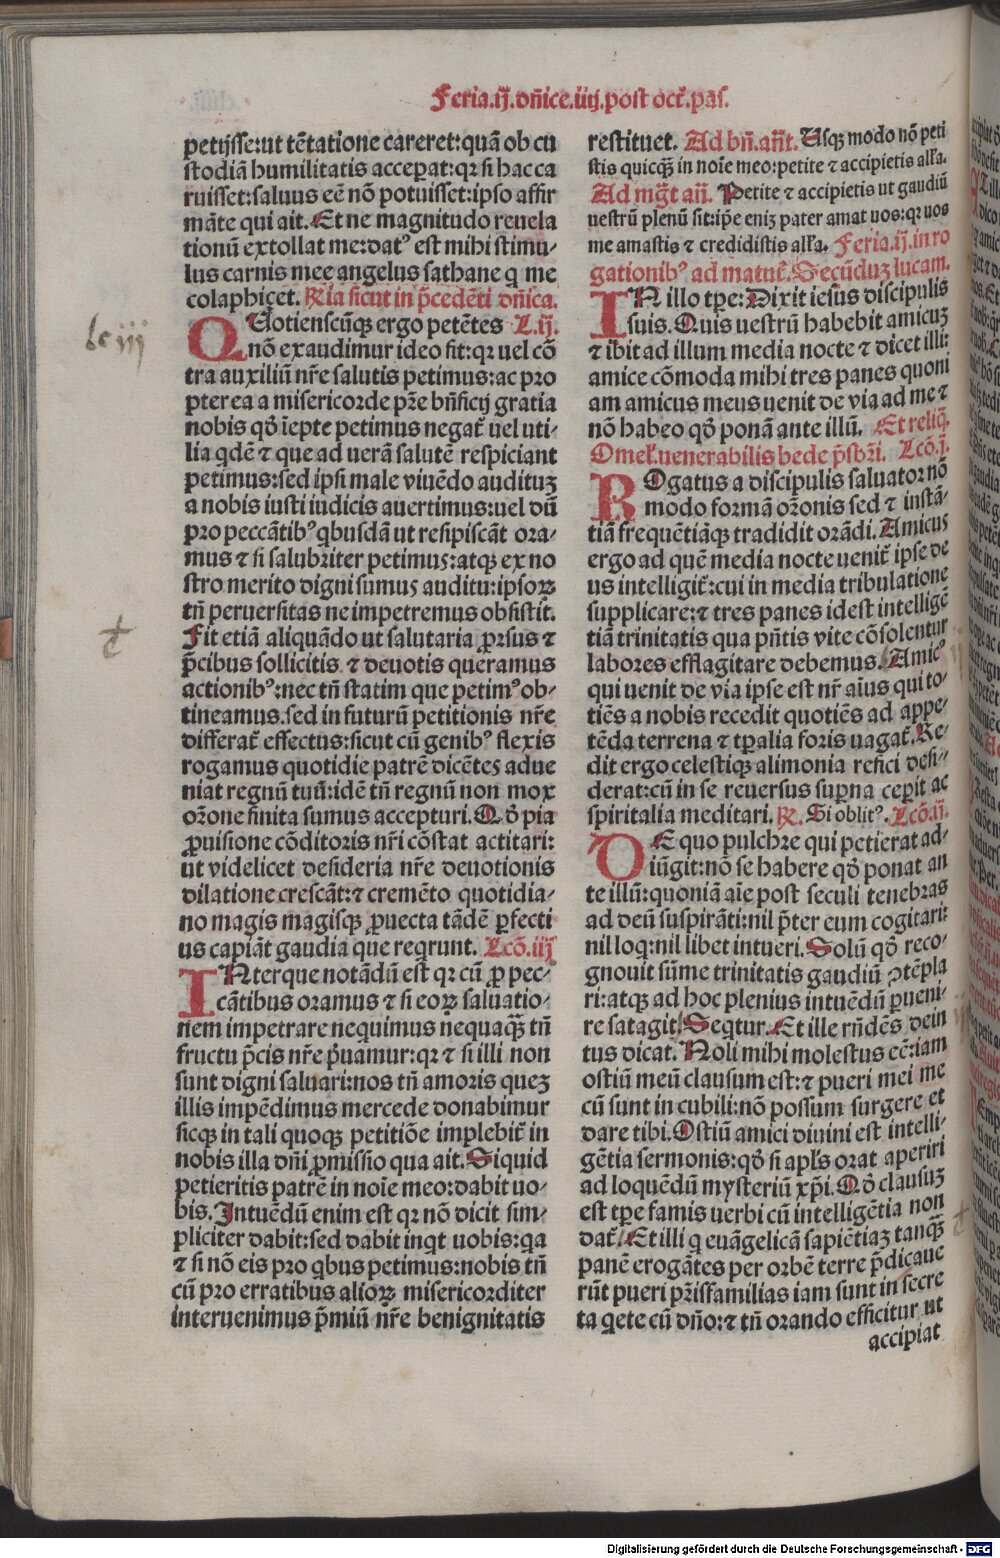 Feria.ij.dñice.iiij.post oct̃.pas̃.
petijsse:ut tẽtatione careret:quã ob cu
stodiã humilitatis acceperat:qꝛ si hac ca
ruisset:saluus eẽ nõ potuisset:ipso affir
mãte qui ait. Et ne magnitudo reuela
tionũ extollat me:datꝰ est mihi stimu-
lus carnis mee angelus sathane q me
colaphicet. ℟ia sicut in p̃cedẽti dñica.
QUotienscũqꝫ ergo petẽtes L.ij.
nõ exaudimur ideo fit:qꝛ uel cõ
tra auxiliũ nr̃e salutis petimus:ac pro
pterea a misericorde pr̃e bñficij gratia
nobis qð iẽpte petimus negat̃ uel uti-
lia qdẽ ⁊ que ad uerã salutẽ respiciant
petimus:sed ipsi male viuẽdo audituꝫ
a nobis iusti iudicis auertimus:uel dũ
pro peccãtibꝰ qbusdã ut resipiscãt ora-
mus ⁊ si salubriter petimus:atqꝫ ex no
stro merito digni sumus auditu:ipsoꝝ
tñ peruersitas ne impetremus obsistit.
Fit etiã aliquãdo ut salutaria ꝓrsus ⁊
p̃cibus sollicitis ⁊ deuotis queramus
actionibꝰ:nec tñ statim que petimꝰ ob-
tineamus.sed in futurũ petitionis nr̃e
differat̃ effectus:sicut cũ genibꝰ flexis
rogamus quotidie patrẽ dicẽtes adue
niat regnũ tuũ:idẽ tñ regnũ non mox
orõne finita sumus accepturi. Qð pia
ꝓuisione cõditoris nr̃i cõstat actitari:
ut videlicet desideria nr̃e deuotionis
dilatione crescãt:⁊ cremẽto quotidia-
no magis magisqꝫ ꝓuecta tãdẽ ꝑfecti
us capiãt gaudia que reqrunt. Lcõ.iij
INter que notãdũ est qꝛ cũ ꝓ pec-
cãtibus oramus ⁊ si eoꝝ saluatio-
nem impetrare nequimus nequaqꝫ tñ
fructu p̃cis nr̃e p̃uamur:qꝛ ⁊ si illi non
sunt digni saluari:nos tñ amoris queꝫ
illis impẽdimus mercede donabimur
sicqꝫ in tali quoqꝫ petitiõe implebit̃ in
nobis illa dñi ꝓmissio qua ait. Siquid
petieritis patrẽ in noĩe meo:dabit uo-
bis. Intuẽdũ enim est qꝛ nõ dicit sim-
pliciter dabit:sed dabit inqt uobis:qa
⁊ si nõ eis pro qbus petimus:nobis tñ
cũ pro erratibus alioꝝ misericorditer
interuenimus p̃miũ nr̃e benignitatis
restituet. Ad bñ.añt. Usqꝫ modo nõ peti
stis quicqꝫ in noĩe meo:petite ⁊ accipietis all̃a.
Ad mg̃t añ. Petite ⁊ accipietis ut gaudiũ
uestrũ plenũ sit:ip̃e enĩꝫ pater amat uos:qꝛ uos
me amastis ⁊ credidistis all̃a. Feria.ij.in ro
gationibꝰ ad matut̃. Secũduꝫ lucam.
IN illo tp̃e: Dixit iesus discipulis
suis. Quis uestrũ habebit amicuꝫ
⁊ ibit ad illum media nocte ⁊ dicet illi:
amice cõmoda mihi tres panes quoni
am amicus meus uenit de via ad me ⁊
nõ habeo qð ponã ante illũ. Et reliq̃.
Omel̃.uenerabilis bede p̃sbr̃i. Lcõ.j.
ROgatus a discipulis saluator nõ
modo formã orõnis sed ⁊ instã-
tiã frequẽtiãqꝫ tradidit orãdi. Amicus
ergo ad quẽ media nocte uenit̃ ipse de
us intelligit̃:cui in media tribulatione
supplicare:⁊ tres panes idest intelligẽ
tiã trinitatis qua pñtis vite cõsolentur
labores efflagitare debemus. Amicꝰ
qui uenit de via ipse est nr̃ aĩus qui to-
tiẽs a nobis recedit quotiẽs ad appe-
tẽda terrena ⁊ tꝑalia foris uagat̃. Re-
dit ergo celestiqꝫ alimonia refici desi-
derat:cũ in se reuersus suꝑna cepit ac
spiritalia meditari. ℟. Si oblitꝰ. Lcõ.ij.
DE quo pulchre qui petierat ad-
iũgit:nõ se habere qð ponat an
te illũ:quoniã aĩe post seculi tenebras
ad deũ suspirãti:nil p̃ter eum cogitari:
nil loq:nil libet intueri. Solũ qð reco-
gnouit sũme trinitatis gaudiũ ꝯtẽpla
ri:atqꝫ ad hoc plenius intuẽdũ ꝑueni-
re satagit. Seqtur. Et ille rñdẽs dein
tus dicat. Noli mihi molestus eẽ:iam
ostiũ meũ clausum est:⁊ pueri mei me
cũ sunt in cubili:nõ possum surgere et
dare tibi. Ostiũ amici diuini est intelli-
gẽtia sermonis:qð si apl̃s orat aperiri
ad loquẽdũ mysteriũ xp̃i. Qð clausuꝫ
est tp̃e famis uerbi cũ intelligẽtia non
dat̃. Et illi q euãgelicã sapiẽtiaꝫ tanqꝫ
panẽ erogãtes per orbẽ terre p̃dicaue
rũt pueri pr̃isfamilias iam sunt in secre
ta qete cũ dño:⁊ tñ orando efficitur ut
accipiat
Digitalisierung gefördert durch die Deutsche Forschungsgemeinschaft - DFG